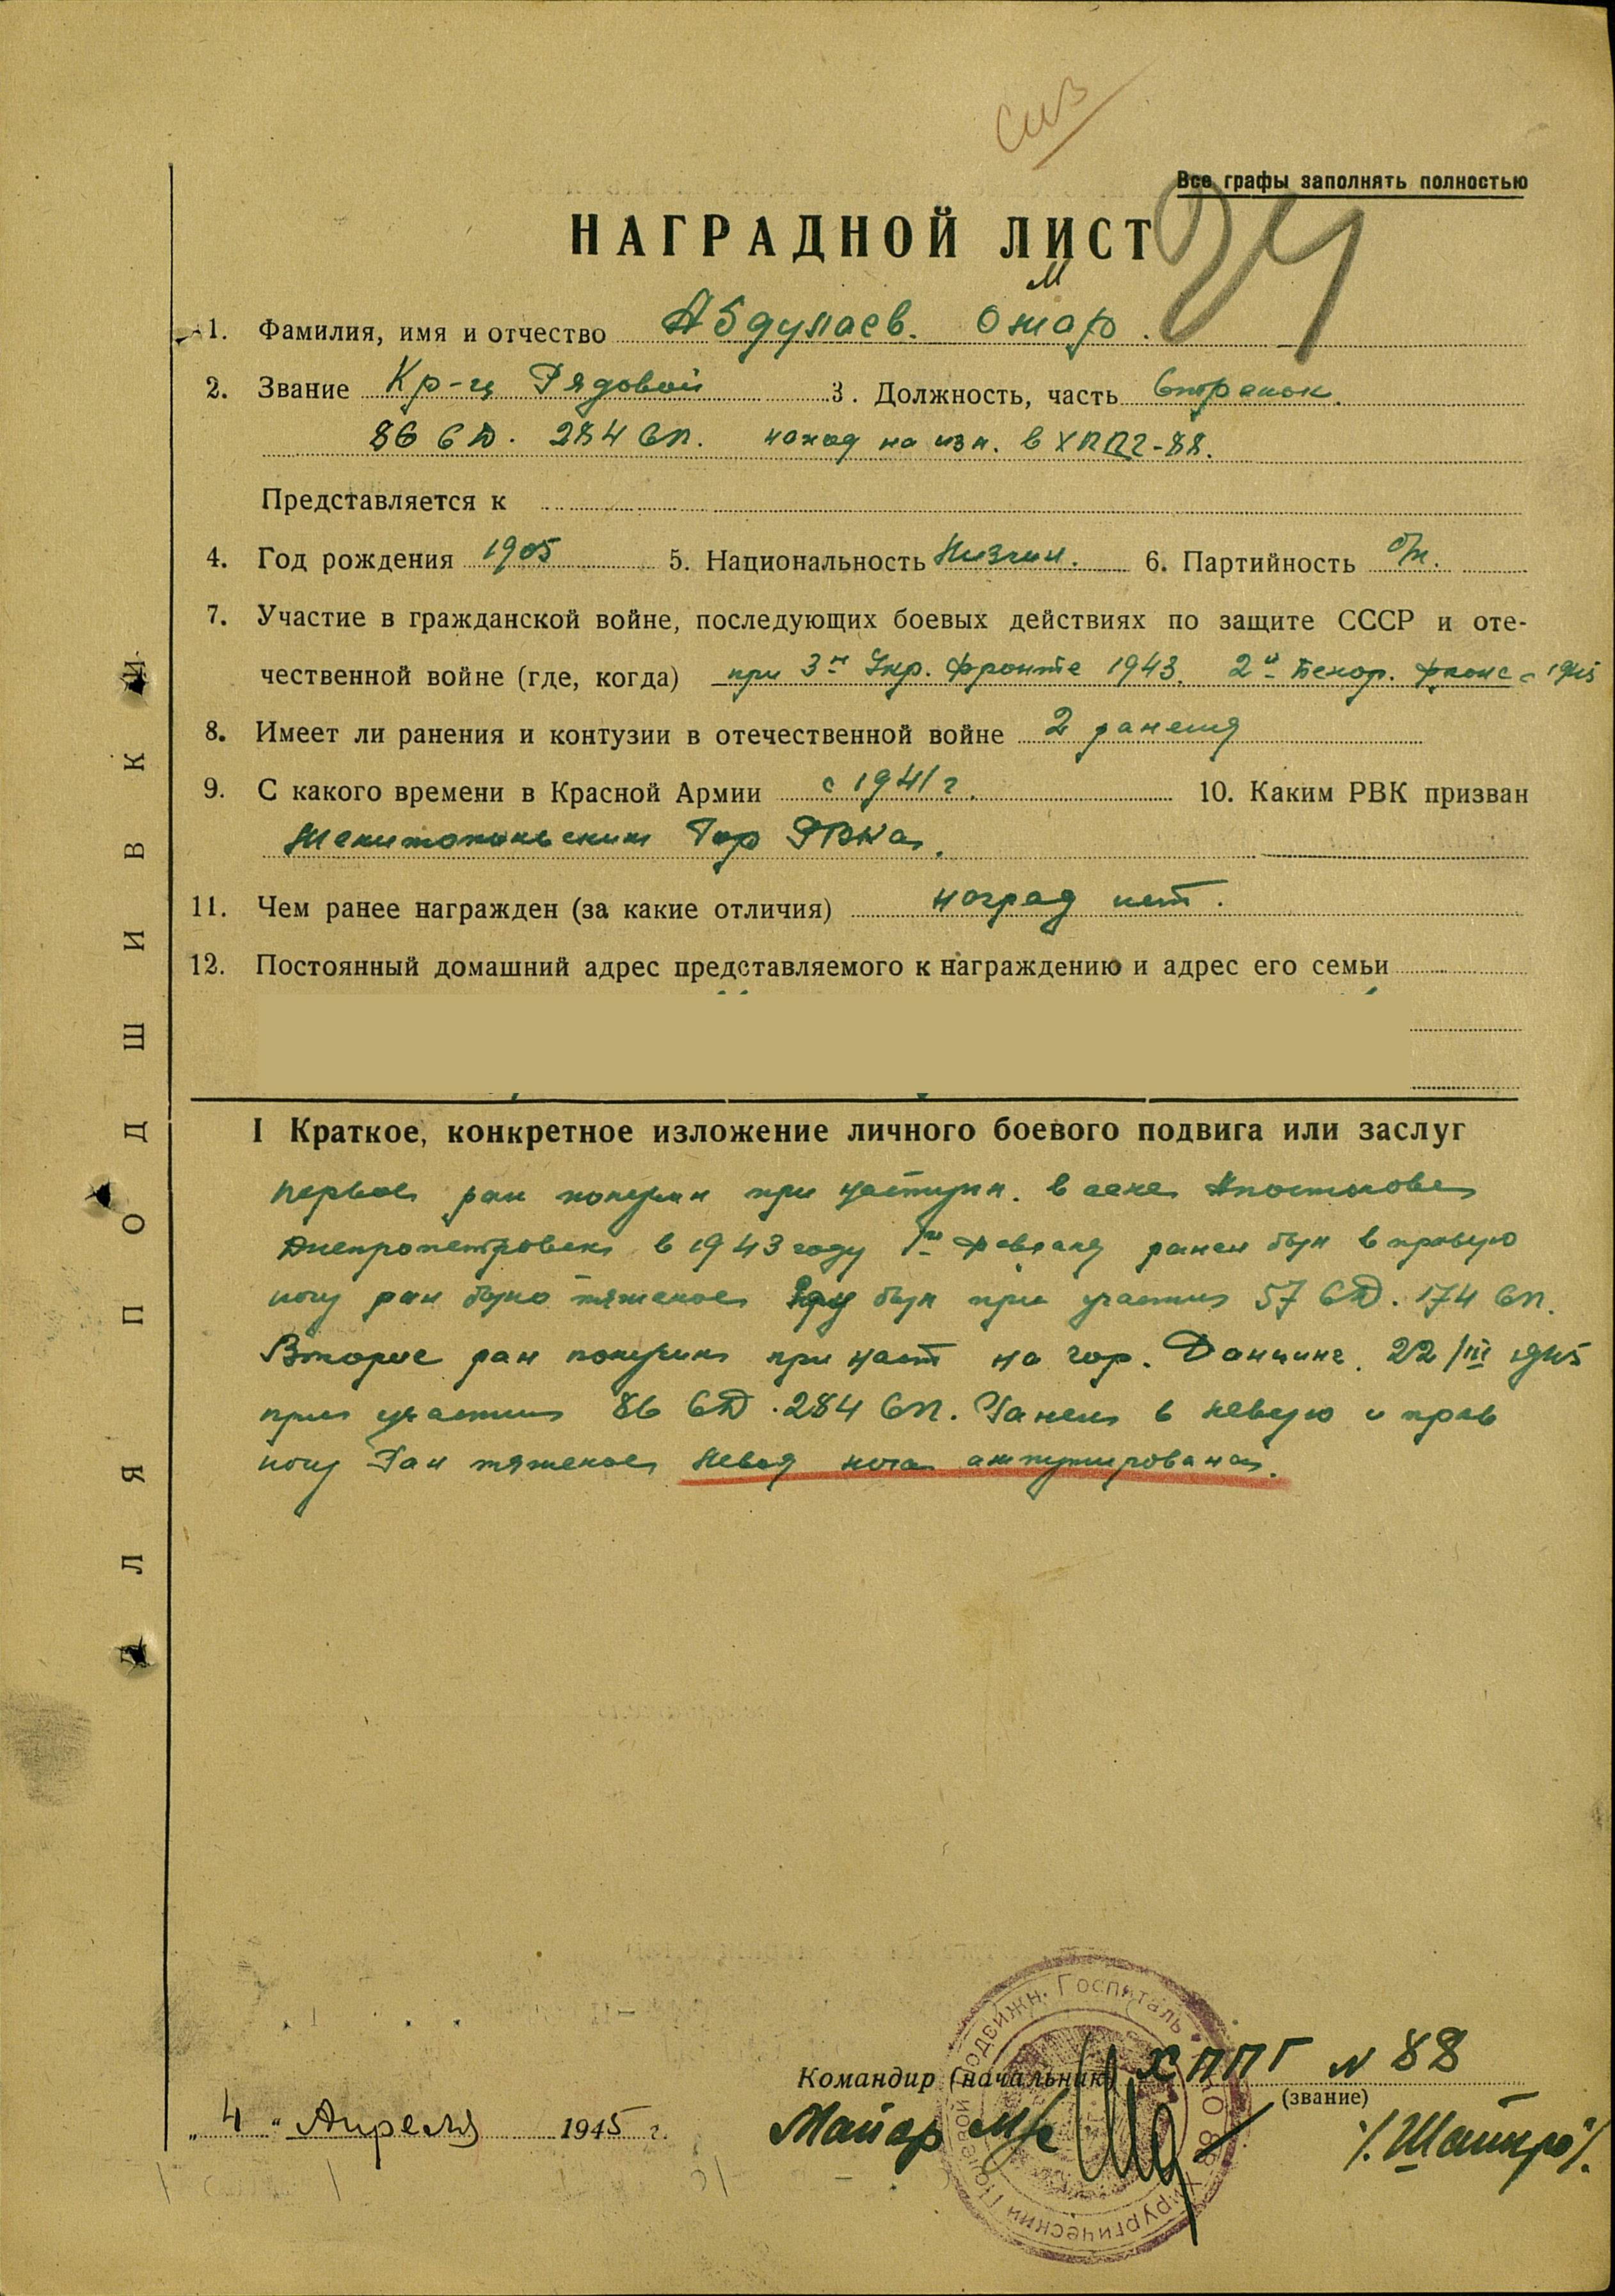 Все графы заполнять полностью
НАГРАДНОЙ ЛИСТ
1. Фамилия, имя и отчество Абдулаев. Омар.
2. Звание Кр-ц Рядовой 3. Должность, часть Стрелок.
86 СД. 284 СП. наход на изл. в ХППГ-88.
Представляется к
4. Год рождения 1905 5. Национальность Лизгин. 6. Партийность б/п.
7. Участие в гражданской войне, последующих боевых действиях по защите СССР и оте-
чественной войне (где, когда) при 3м Укр. Фронте 1943. 2й Белор. 1945
8. Имеет ли ранения и контузии в отечественной войне 2 раненя
9. С какого времени в Красной Армии с 1941 г. 10. Каким РВК призван
Мелитопольским Гор РВКа.
11. Чем ранее награжден (за какие отличия) наград нет.
12. Постоянный домашний адрес представляемого к награждению и адрес его семьи
I Краткое, конкретное изложение личного боевого подвига или заслуг
первое ран получил при наступл. в селе Апостолове
Днепропетровск в 1943 году февраля ранен был в правую
ногу ран было тяжелое был при участие 57 СД. 174 СП.
Второе ран получил при наст на гор. Данцинг. 22/III 1945
при участие 86 СД. 284 СП. Ранен в левую и прав
ногу Ран тяжелое Левая нога ампутирована.
Командир (начальник) ХППГ N 88
(звание)
„4“ Апреля 1945 г. Майор м/с /Шапиро/.
Хирургический Полевой Подвижн. Госпиталь
ДЛЯ ПОДШИВКИ